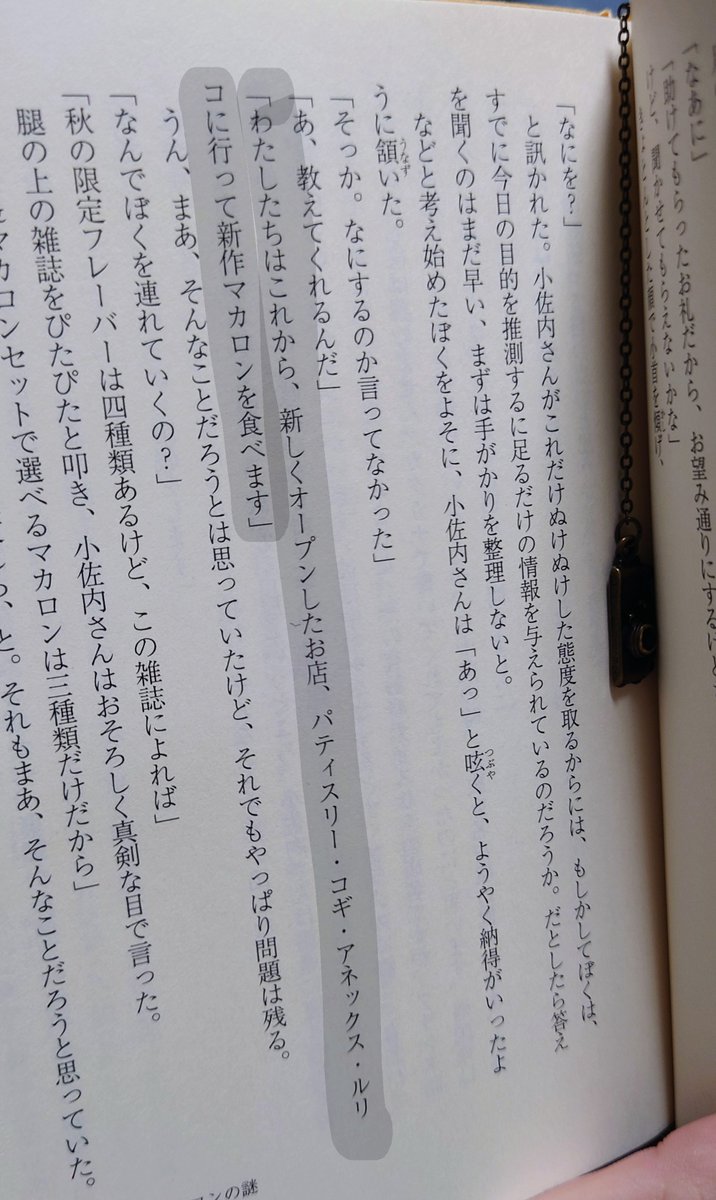 「なあに」
「助けてもらったお礼だから、お望み通りにするけど
けど、聞かせてもらえないかな」
「なにを？」
と訊かれた。小佐内さんがこれだけぬけぬけした態度を取るからには、もしかしてぼくは、
すでに今日の目的を推測するに足るだけの情報を与えられているのだろうか。だとしたら答え
を聞くのはまだ早い、まずは手がかりを整理しないと。
などと考え始めたぼくをよそに、小佐内さんは「あっ」と呟くと、ようやく納得がいったよ
うに頷いた。
「そっか。なにするのか言ってなかった」
「あ、教えてくれるんだ」
「わたしたちはこれから、新しくオープンしたお店、パティスリー・コギ・アネックス・ルリ
コに行って新作マカロンを食べます」
うん、まあ、そんなことだろうとは思っていたけど、それでもやっぱり問題は残る。
「なんでぼくを連れていくの？」
「秋の限定フレーバーは四種類あるけど、この雑誌によれば」
腿の上の雑誌をぴたぴたと叩き、小佐内さんはおそろしく真剣な目で言った。
マカロンセットで選べるマカロンは三種類だけだから」
と。それもまあ、そんなことだろうと思っていた。
ンの謎